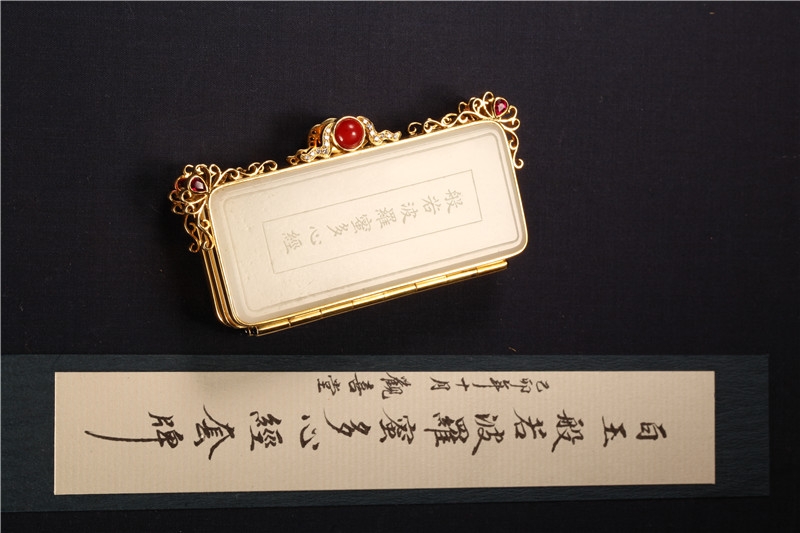 般若波羅蜜多心經
白玉般若波羅蜜多心經套牌
己卯年十月 觀喜堂